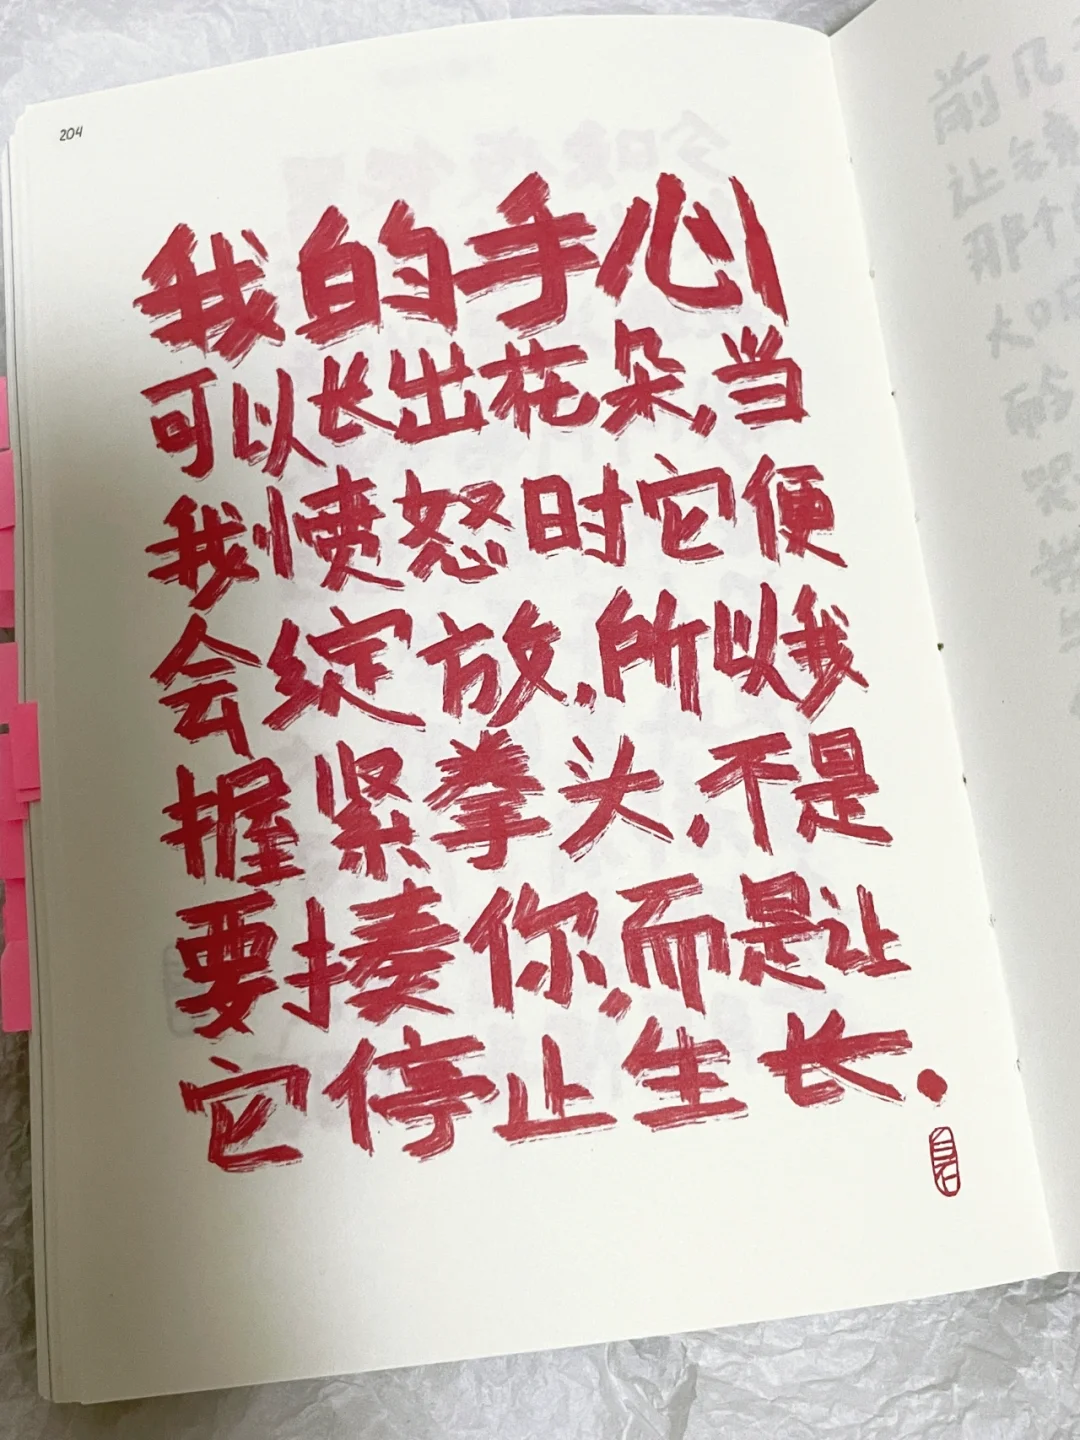 204
我的手心
可以长出花朵,当
我愤怒时它便
会绽放,所以我
握紧拳头,不是
要揍你,而是让
它停止生长.
前几
让
那个